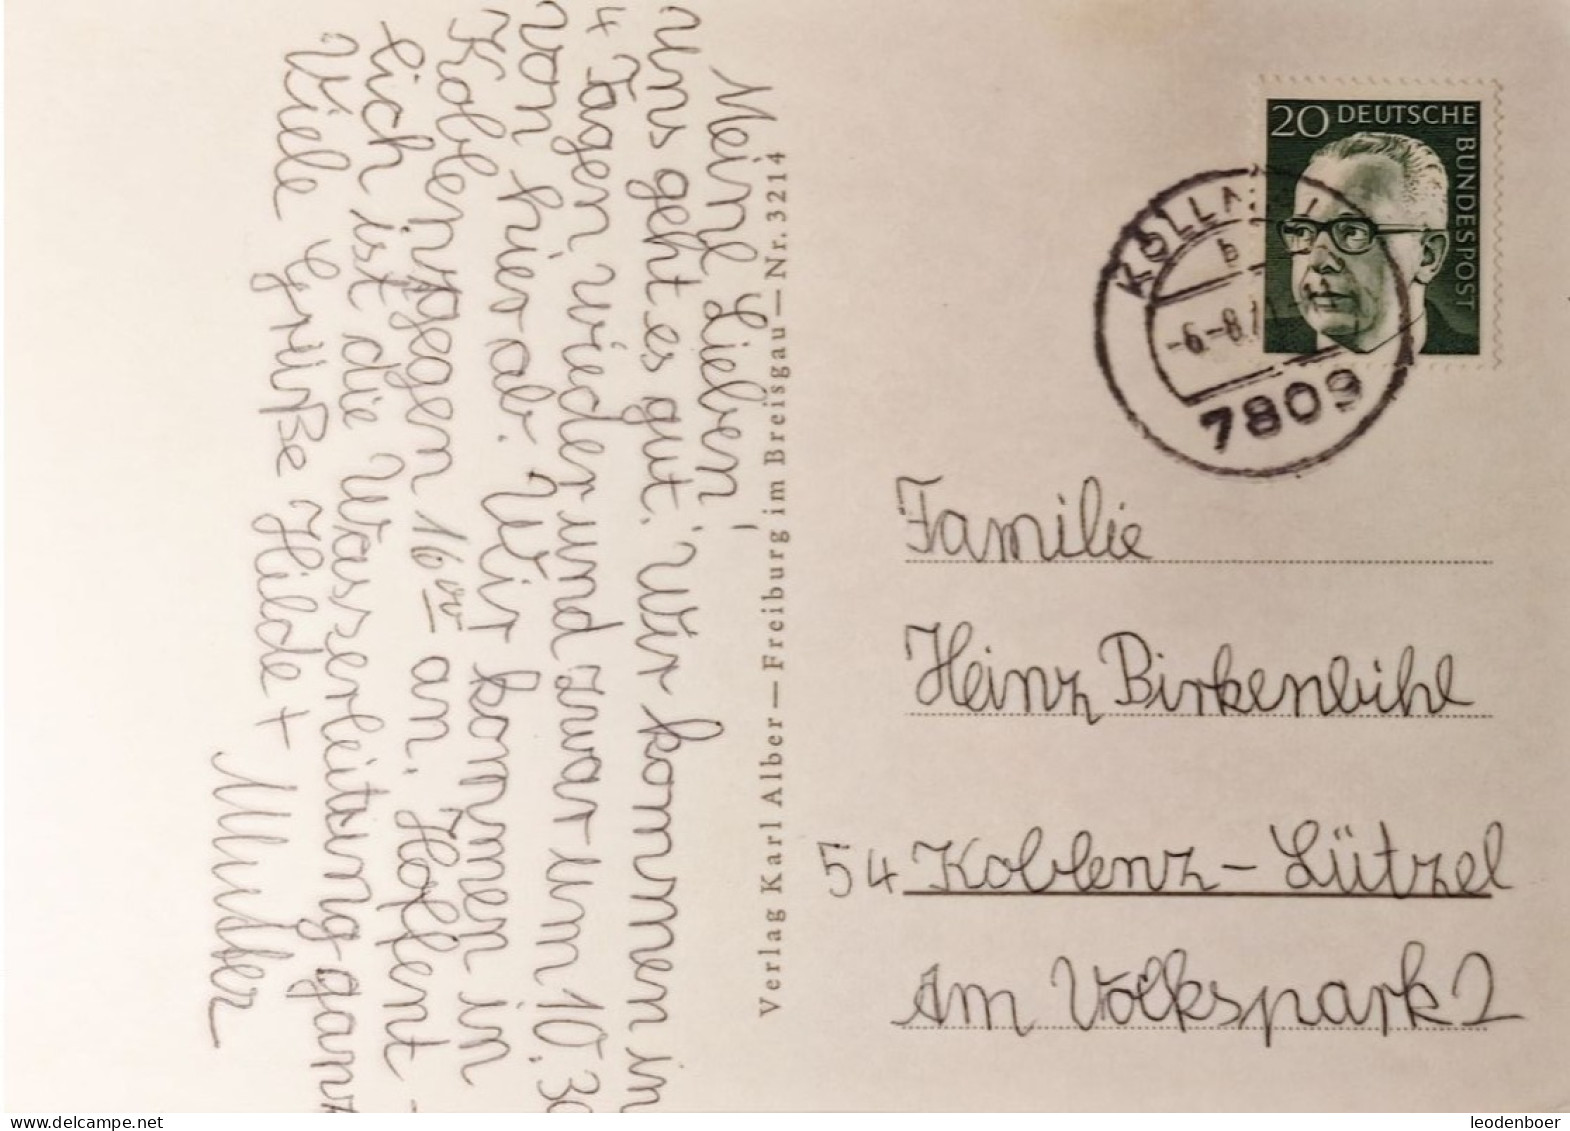 Meine Lieben!
Uns geht es gut. Wir kommen in
4 Tagen wieder und zwar um 10.30
von hier ab. Wir kommen in
Koblenz gegen 16 an. Hoffent-
lich ist die Wasserleitung ganz
Viele Grüße Hilde +
Mutter
Verlag Karl Alber — Freiburg im Breisgau — Nr. 3214
20 DEUTSCHE
BUNDESPOST
b
-6.-8.
7809
Familie
Heinz Birkenbihl
54 Koblenz-Lützel
Am Volkspark 2
delcampe.net
leodenboer